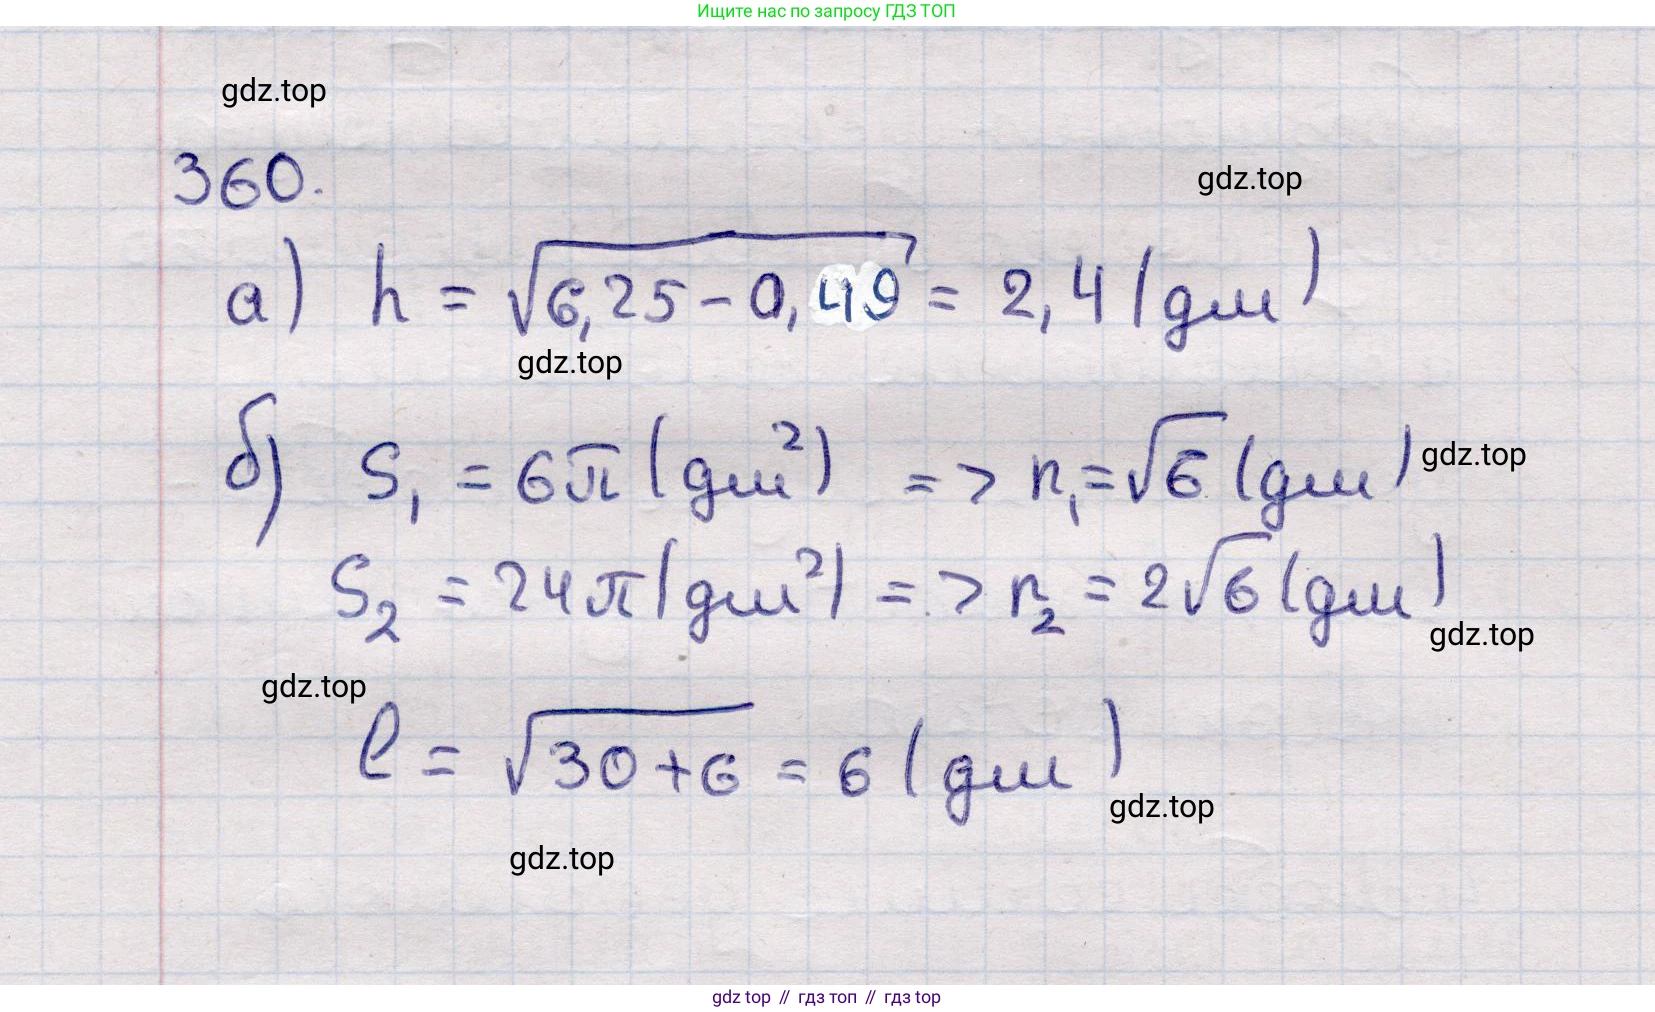 Ищите нас по запросу ГДЗ ТОП
gdz.top
360.
gdz.top
а) h = √6,25 - 0,49 = 2,4 (дм)
gdz.top
б) S₁ = 6π (дм²) => r₁ = √6 (дм)
gdz.top
S₂ = 24π (дм²) => r₂ = 2√6 (дм)
gdz.top
gdz.top
l = √30+6 = 6 (дм)
gdz.top
gdz.top
gdz top // гдз топ // gdz top